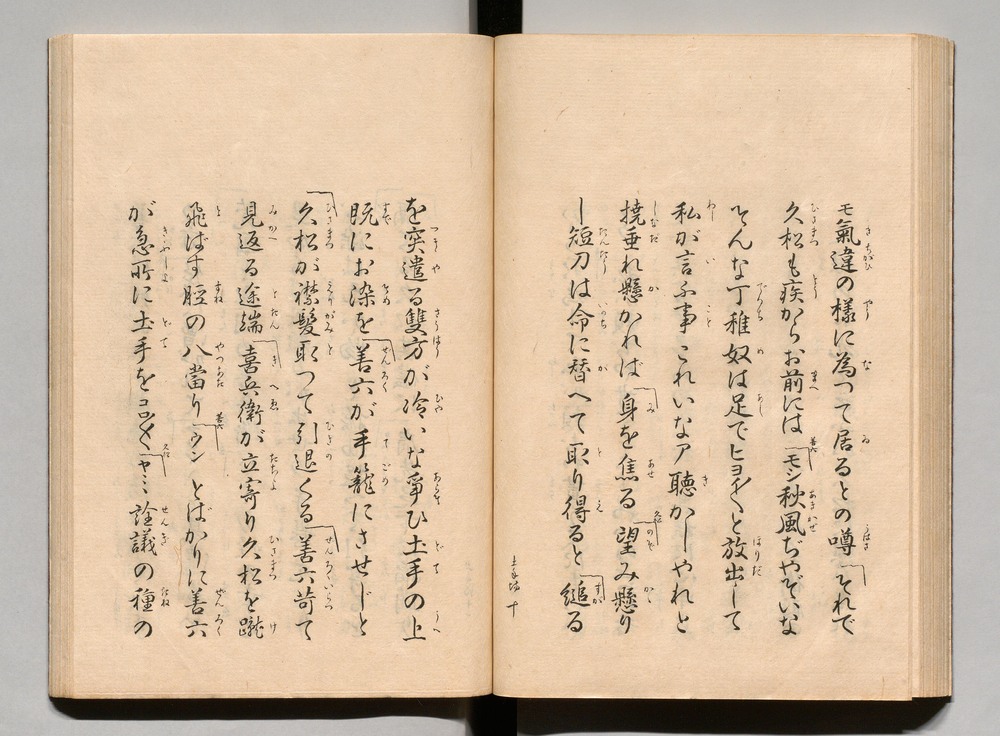 モ氣違の様に為つて居るとの噂それで
久松も疾からお前にはモシ秋風ぢやぞいな
そんな丁稚奴は足でヒヨイ〱と放出して
私が言ふ事これいなア聴かしやれと
撓垂れ懸かれは身を焦る望み懸り
し短刀は命に替へて取り得ると縋る
土手場 十
を突遣る雙方が冷いな爭ひ土手の上
既にお染を善六が手籠にさせじと
久松が襟髪取つて引退くる善六苛て
見返る途端喜兵衛が立寄り久松を蹴
飛ばす脛の八當りウンとばかりに善六
が急所に土手をコロ〱ヤミ詮議の種の